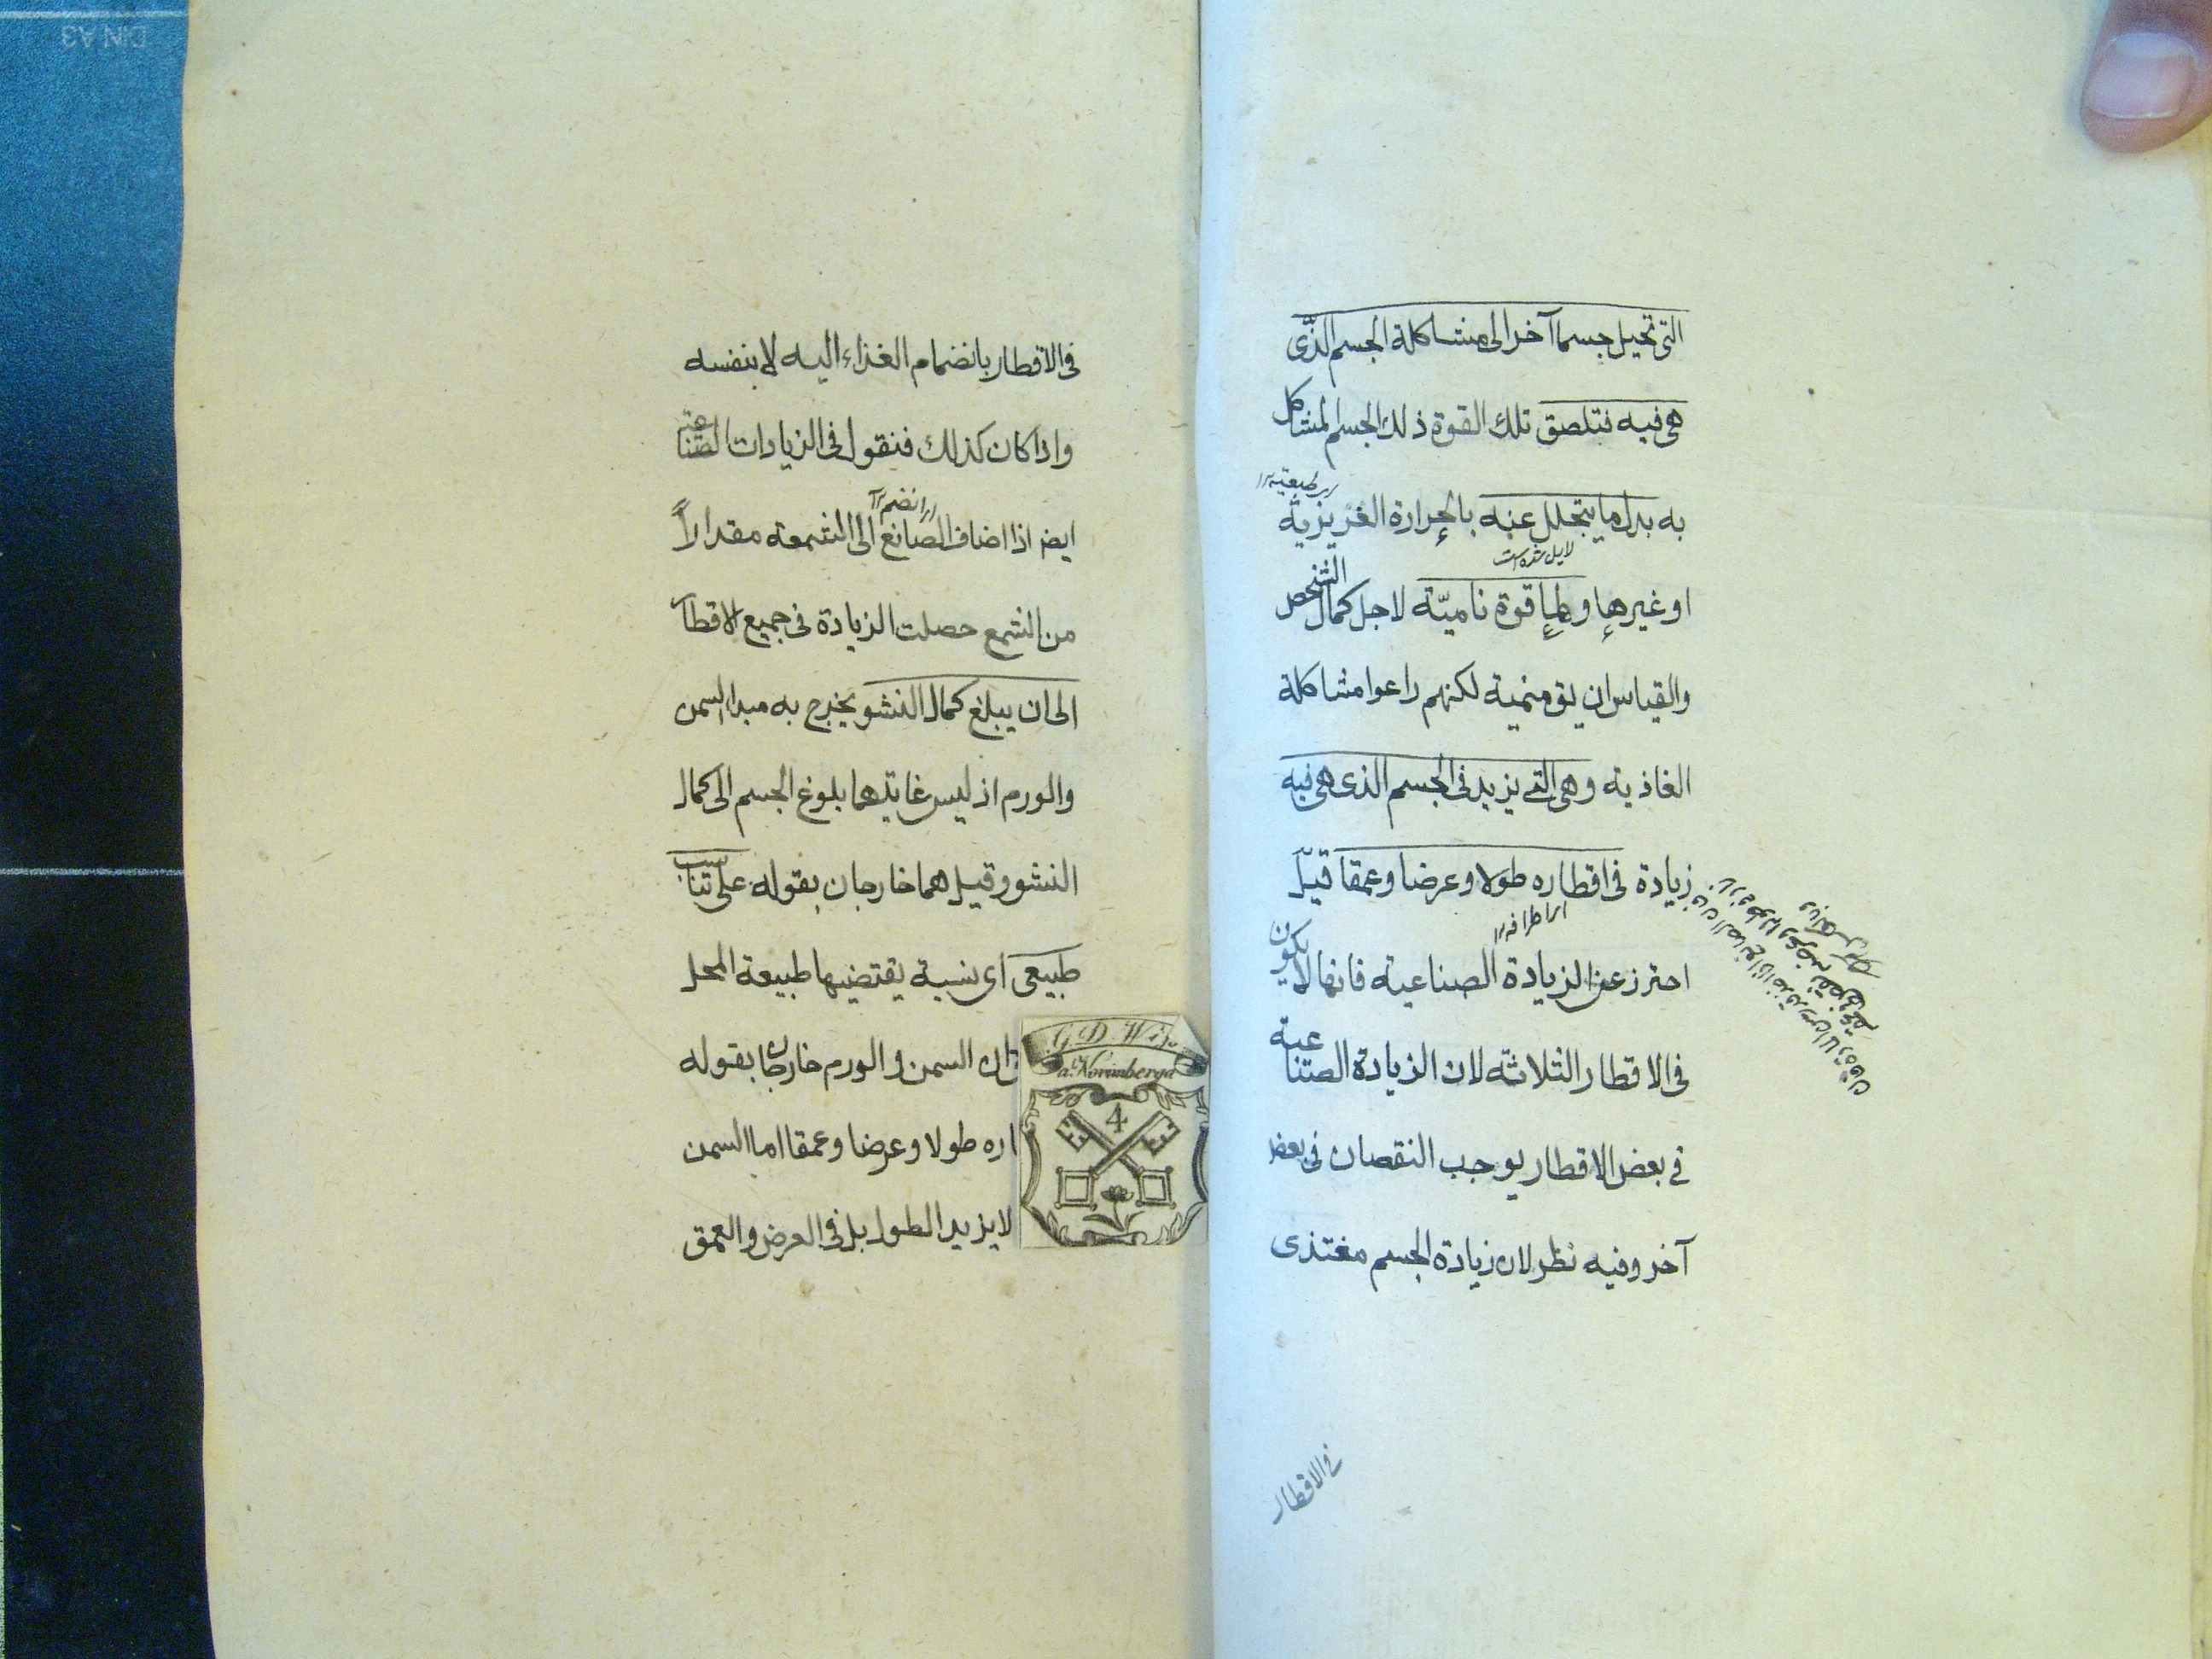 التى تحيل جسما آخر الى مشاكلة الجسم الذّى
هى فيه فتلصق تلك القوة ذلك الجسم المشاكل
به بدل ما يتحلل عنه بالحرارة الغريزية
او غيرها ولها قوة ناميّة لاجل كمال الشخص
والقياس ان يق منمية لكنهم راعوا مشاكلة
الغاذية وهى التى يزيد فى الجسم الذى هى فيه
زيادة فى اقطاره طولا وعرضا وعمقا قيل
اى اطرافه
احترز عن الزيادة الصناعية فانها لا يكون
فى الاقطار الثلاثة لان الزيادة الصناعية
فى بعض الاقطار يوجب النقصان فى بعض
آخر وفيه نظر لان زيادة الجسم مغتذى
فى الاقطار
فى الاقطار بانضمام الغذاء اليه لا بنفسه
واذا كان كذلك فنقول فى الزيادات الصناعية
انضم
ايض اذا اضاف الصانع الى الشمعة مقداراً
من الشمع حصلت الزيادة فى جميع الاقطار
الى ان يبلغ كمال النشو يخرج به مبدا السمن
والورم اذ ليس غايتهما بلوغ الجسم الى كمال
النشو وقيل هما خارجان بقوله على تناسب
طبيعى اى نسبة يقتضيها طبيعة المحل
ان السمن والورم خارجان بقوله
اره طولا وعرضا وعمقا اما السمن
لا يزيد الطول بل فى العرض والعمق
G. D. W
a Norimberga
4
DIN A3